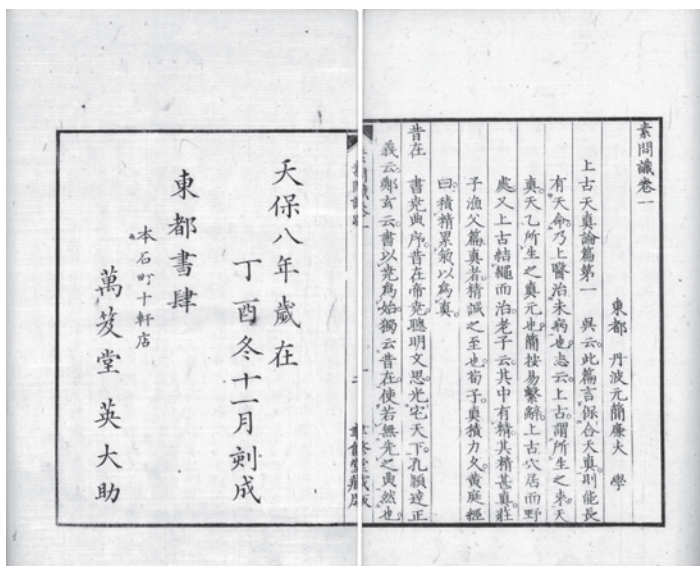 素問識卷一
東都 丹波元簡廉夫 學
上古天真論篇第一 吳云此篇言保合天真則能長
有天命乃上醫治未病也志云上古謂所生之來天
真天乙所生之真元也簡按易繫辭上古穴居而野
處又上古結繩而治老子云其中有精其精甚真莊
子漁父篇真者精誠之至也荀子真積力久黃庭經
曰積精累氣以為真
昔在 書堯典序昔在帝堯聰明文思光宅天下孔穎達正
義云鄭玄云書以堯為始獨云昔在使若無先之典然也
天保八年歲在
丁酉冬十一月刻成
東都書肆
本石町十軒店
萬笈堂 英大助